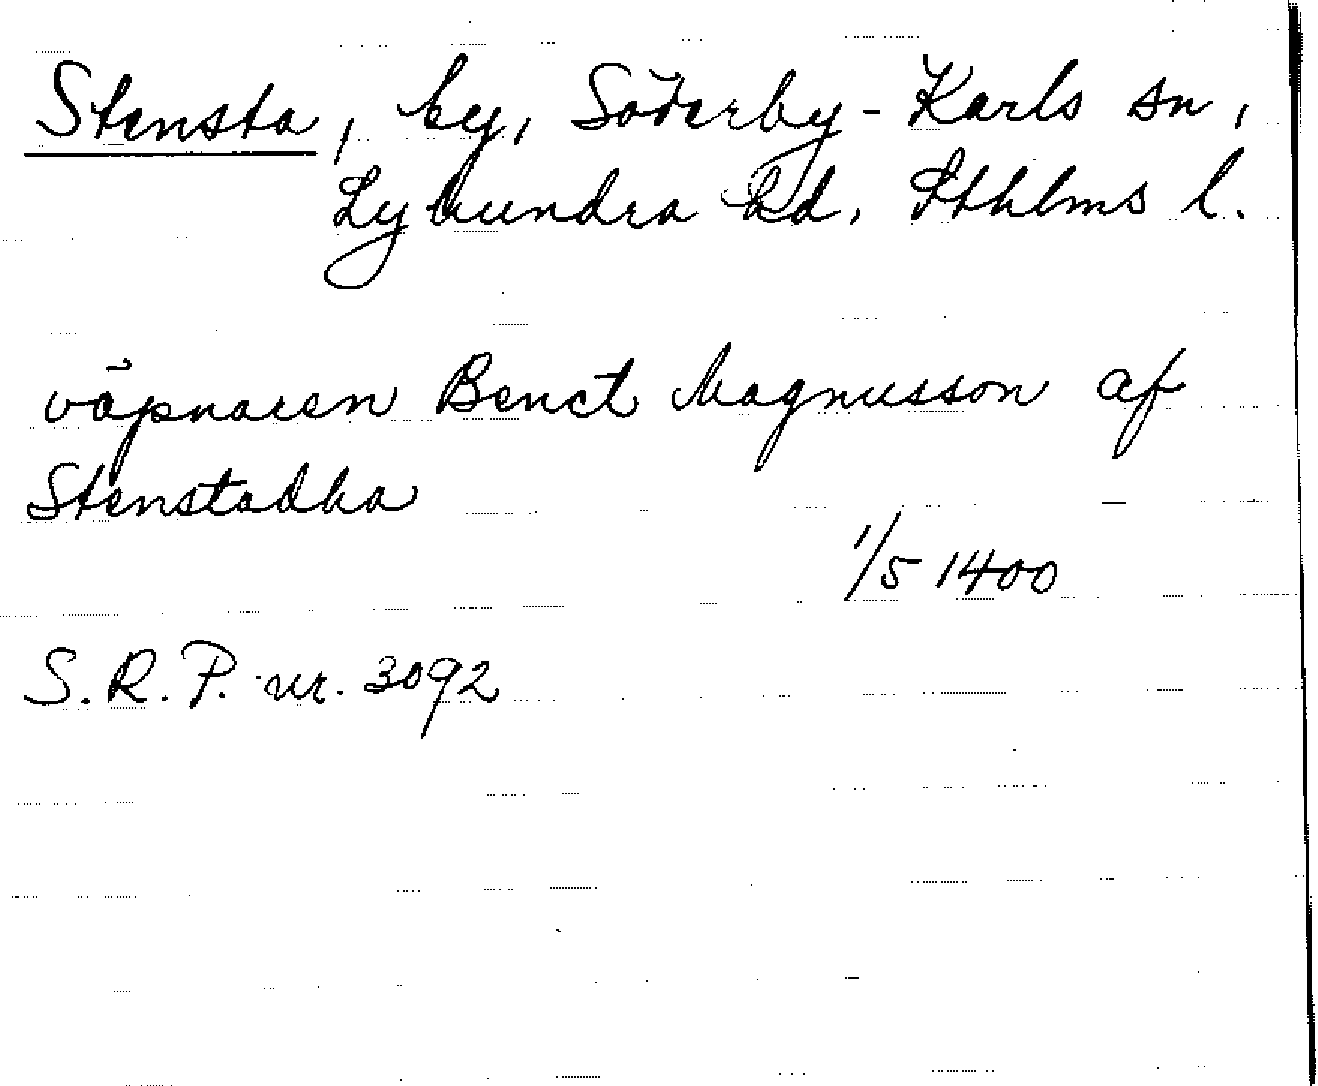 Stensta, by, Söderby-Karls sn,
Lyhundra hd, Sthlms l.
väpnaren Benct Magnusson af
Stenstadha
1/5 1400
S.R.P. nr. 3092